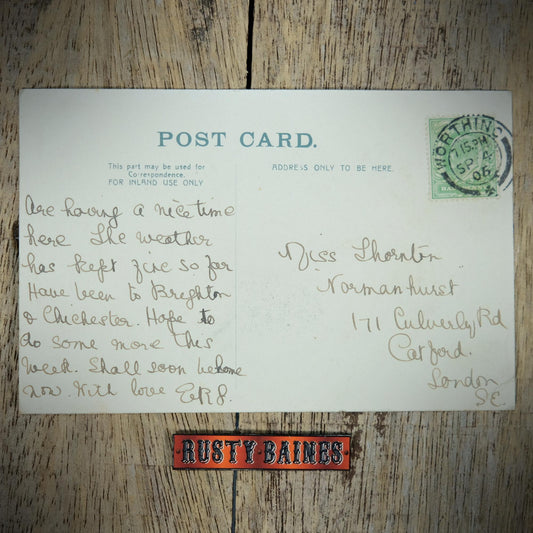 POST CARD.
This part may be used for
Correspondence.
FOR INLAND USE ONLY
ADDRESS ONLY TO BE HERE.
WORTHING
7.15PM
SP 4
06
Are having a nice time
here The weather
has kept fine so far
Have been to Brighton
& Chichester. Hope to
do some more this
week. Shall soon be home
now. With love
Miss Thornton
Normanhurst
171 Culverly Rd
Catford.
London
S.E.
RUSTY·BAINES